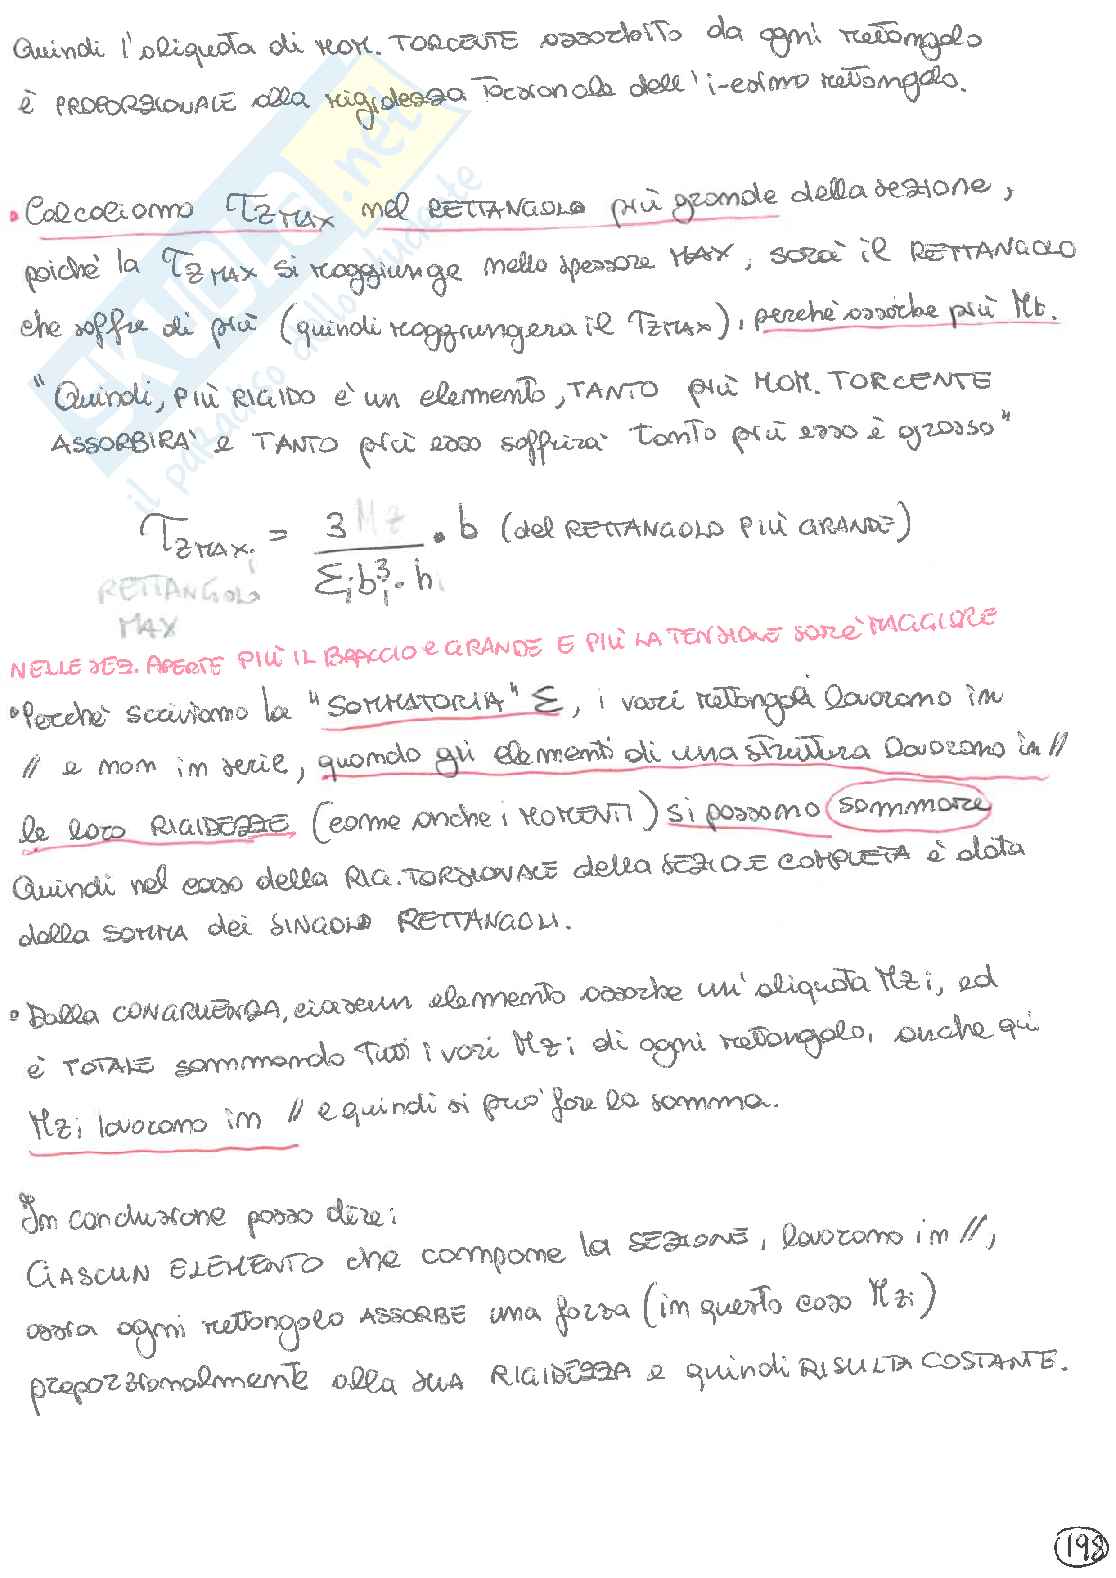 Quindi l'aliquota di MOM. TORCENTE assorbito da ogni rettangolo
è PROPORZIONALE alla rigidezza Torsionale dell'i-esimo rettangolo.
• Calcoliamo τZMAX nel RETTANGOLO più grande della sezione,
poiché la τZMAX si raggiunge nello spessore MAX, sarà il RETTANGOLO
che soffre di più (quindi raggiungerà il τZMAX), perché assorbe più Mt.
"Quindi, PIÙ RIGIDO è un elemento, TANTO più MOM. TORCENTE
ASSORBIRA' e TANTO più esso soffrirà tanto più esso è grosso"
τZMAX,i = 3 Mz / Σi bi³ · hi · b (del RETTANGOLO PIÙ GRANDE)
RETTANGOLO
MAX
NELLE SEZ. APERTE PIÙ IL BRACCIO è GRANDE E PIÙ LA TENSIONE SARÀ MAGGIORE
• Perché scriviamo la "SOMMATORIA" Σ, i vari rettangoli lavorano in
// e non in serie, quando gli elementi di una struttura lavorano in //
le loro RIGIDEZZE (come anche i MOMENTI) si possono sommare
Quindi nel caso della RIG. TORSIONALE della SEZIO.E COMPLETA è data
dalla SOMMA dei SINGOLI RETTANGOLI.
• Dalla CONGRUENZA, ciascun elemento assorbe un'aliquota Mzi, ed
è TOTALE sommando Tutti i vari Mzi di ogni rettangolo, anche qui
Mzi lavorano in // e quindi si può fare la somma.
In conclusione posso dire:
CIASCUN ELEMENTO che compone la SEZIONE, lavorano in //,
ossia ogni rettangolo ASSORBE una forza (in questo caso Mzi)
proporzionalmente alla sua RIGIDEZZA e quindi RISULTA COSTANTE.
198
SKUOLA.net
il paradiso dello studente